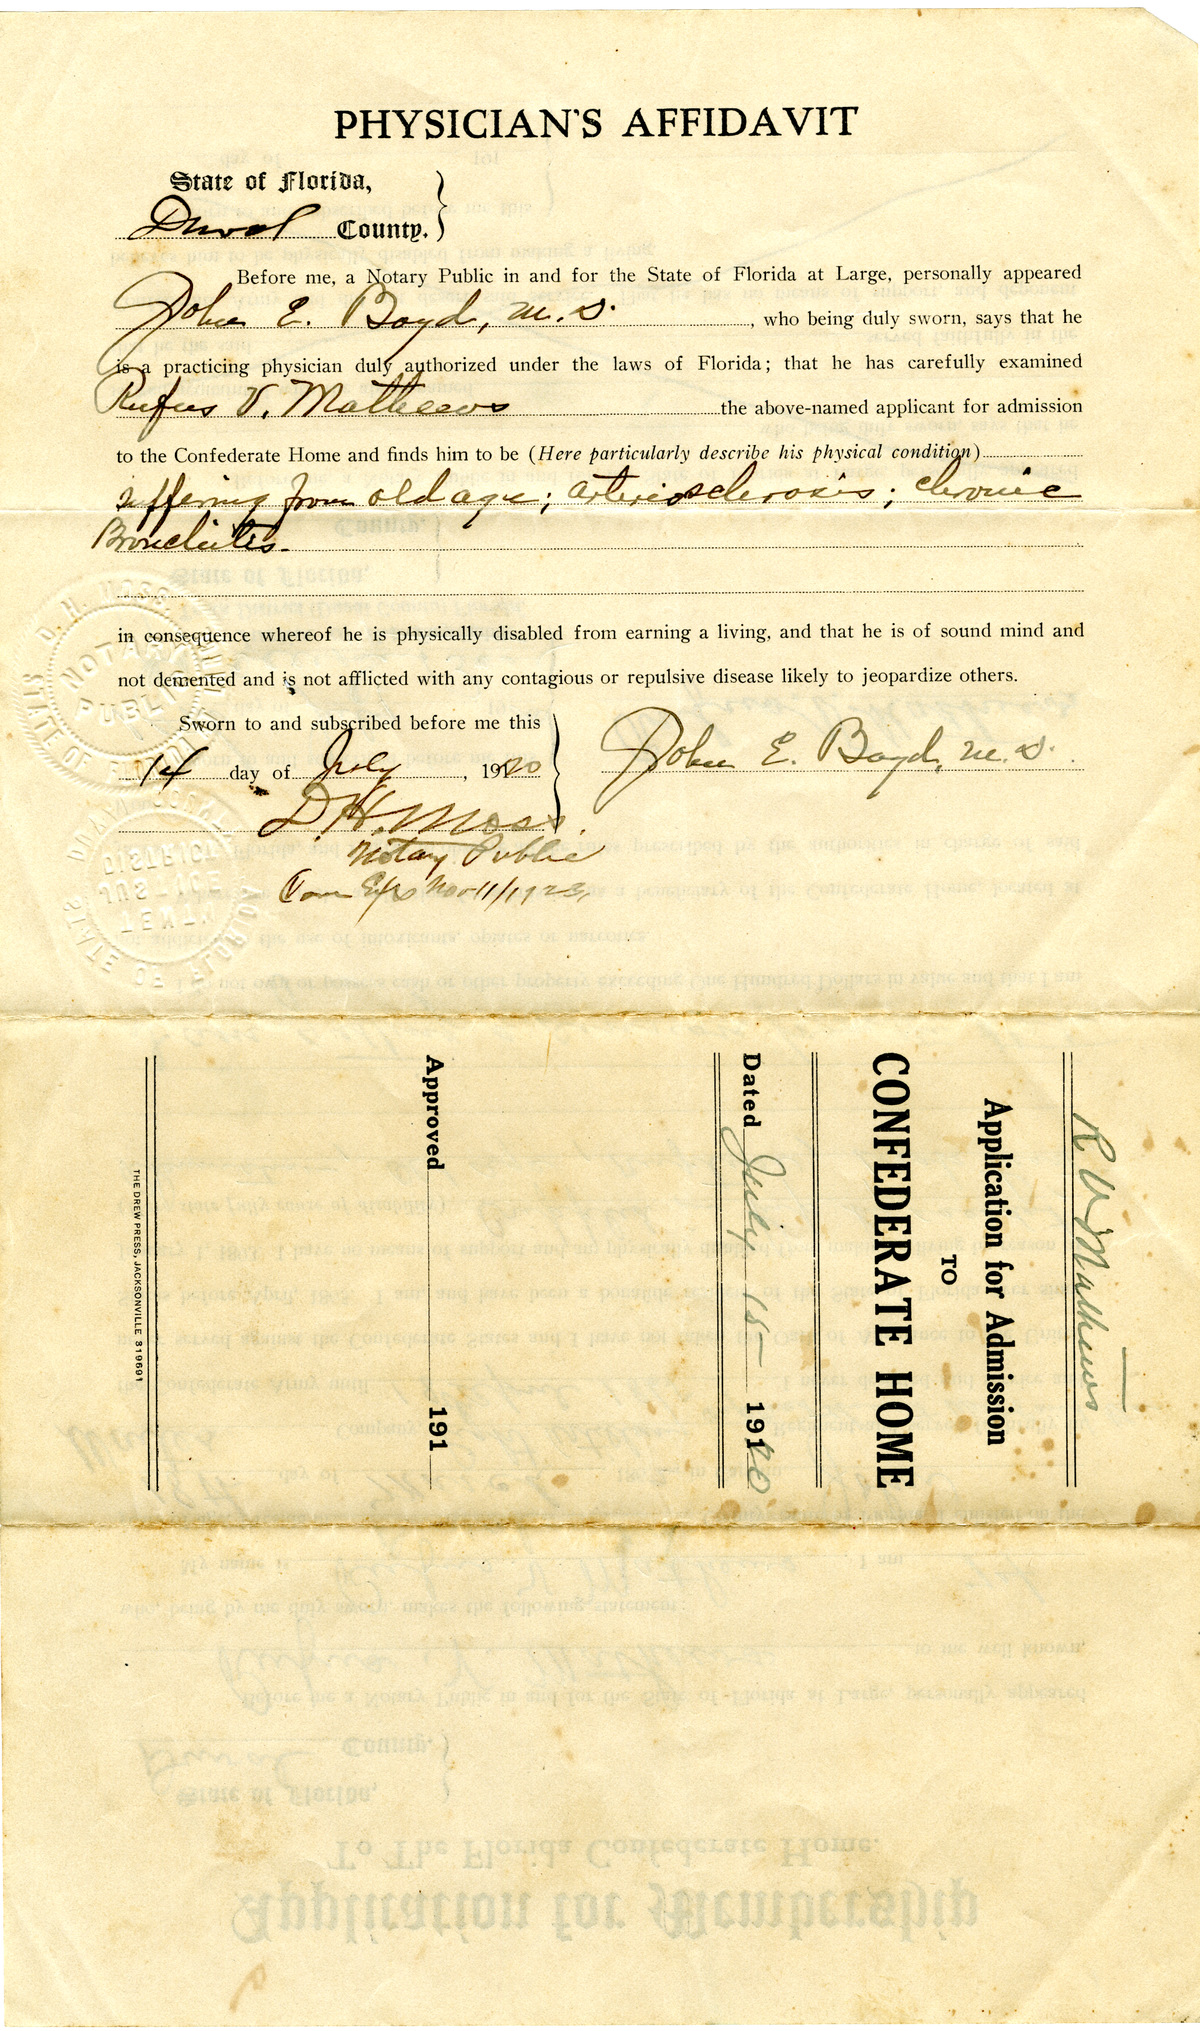 PHYSICIAN'S AFFIDAVIT
State of Florida,
Duval County.
Before me, a Notary Public in and for the State of Florida at Large, personally appeared
John E. Boyd, M. D. , who being duly sworn, says that he
is a practicing physician duly authorized under the laws of Florida; that he has carefully examined
Rufus V. Mathews the above-named applicant for admission
to the Confederate Home and finds him to be (Here particularly describe his physical condition)
suffering from old age; arteriosclerosis; chronic
Bronchitis.
in consequence whereof he is physically disabled from earning a living, and that he is of sound mind and
not demented and is not afflicted with any contagious or repulsive disease likely to jeopardize others.
Sworn to and subscribed before me this
14 day of July , 1920
John E. Boyd, M. D.
D. H. Moss.
Notary Public
Com Exps Nov 11/1923,
D. H. MOSS
NOTARY
PUBLIC
STATE OF FLORIDA
DUVAL COUNTY
DISTRICT
JUSTICE
TENTH
STATE OF FLORIDA
R V Mathews
Application for Admission
TO
CONFEDERATE HOME
Dated July 15 1920
Approved 191
THE DREW PRESS, JACKSONVILLE 819691